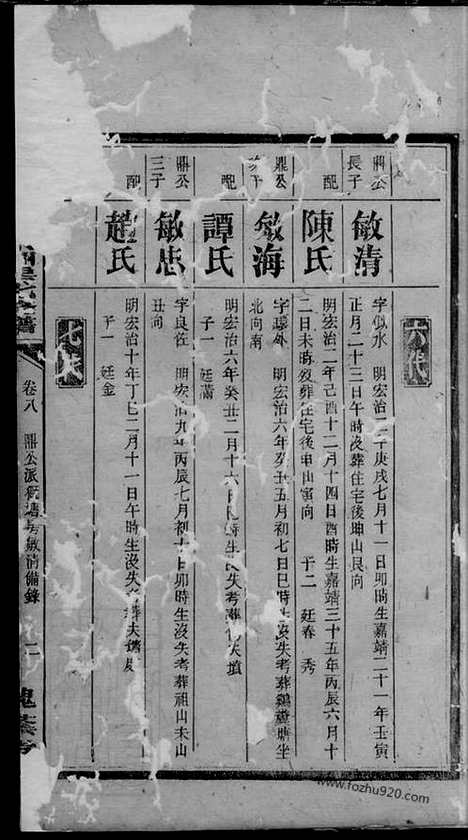 六代
鼎公
長子
敏清
字似水 明宏治三年庚戌七月十一日卯時生嘉靖二十一年壬寅
正月二十三日午時沒葬住宅後坤山艮向
配
陳氏
明宏治二年己酉十二月十四日酉時生嘉靖三十五年丙辰六月十
二日未時歿葬住宅後申山寅向 子二 廷春 秀
鼎公
次子
敏海
字 外 明宏治六年癸丑五月初七日巳時生沒失考葬鷄 塘坐
北向南
配
譚氏
明宏治六年癸丑二月十六日 時生沒失考葬 夫墳
子一 廷滿
鼎公
三子
敏忠
字良佐 明宏治九年丙辰七月初十日卯時生沒失考葬祖山未山
丑向
配
趙氏
明宏治十年丁巳二月十一日午時生沒失考葬夫墳
子一 廷金
七代
卷八 鼎公派 塘房敏清備錄
二
www.fozhu920.com